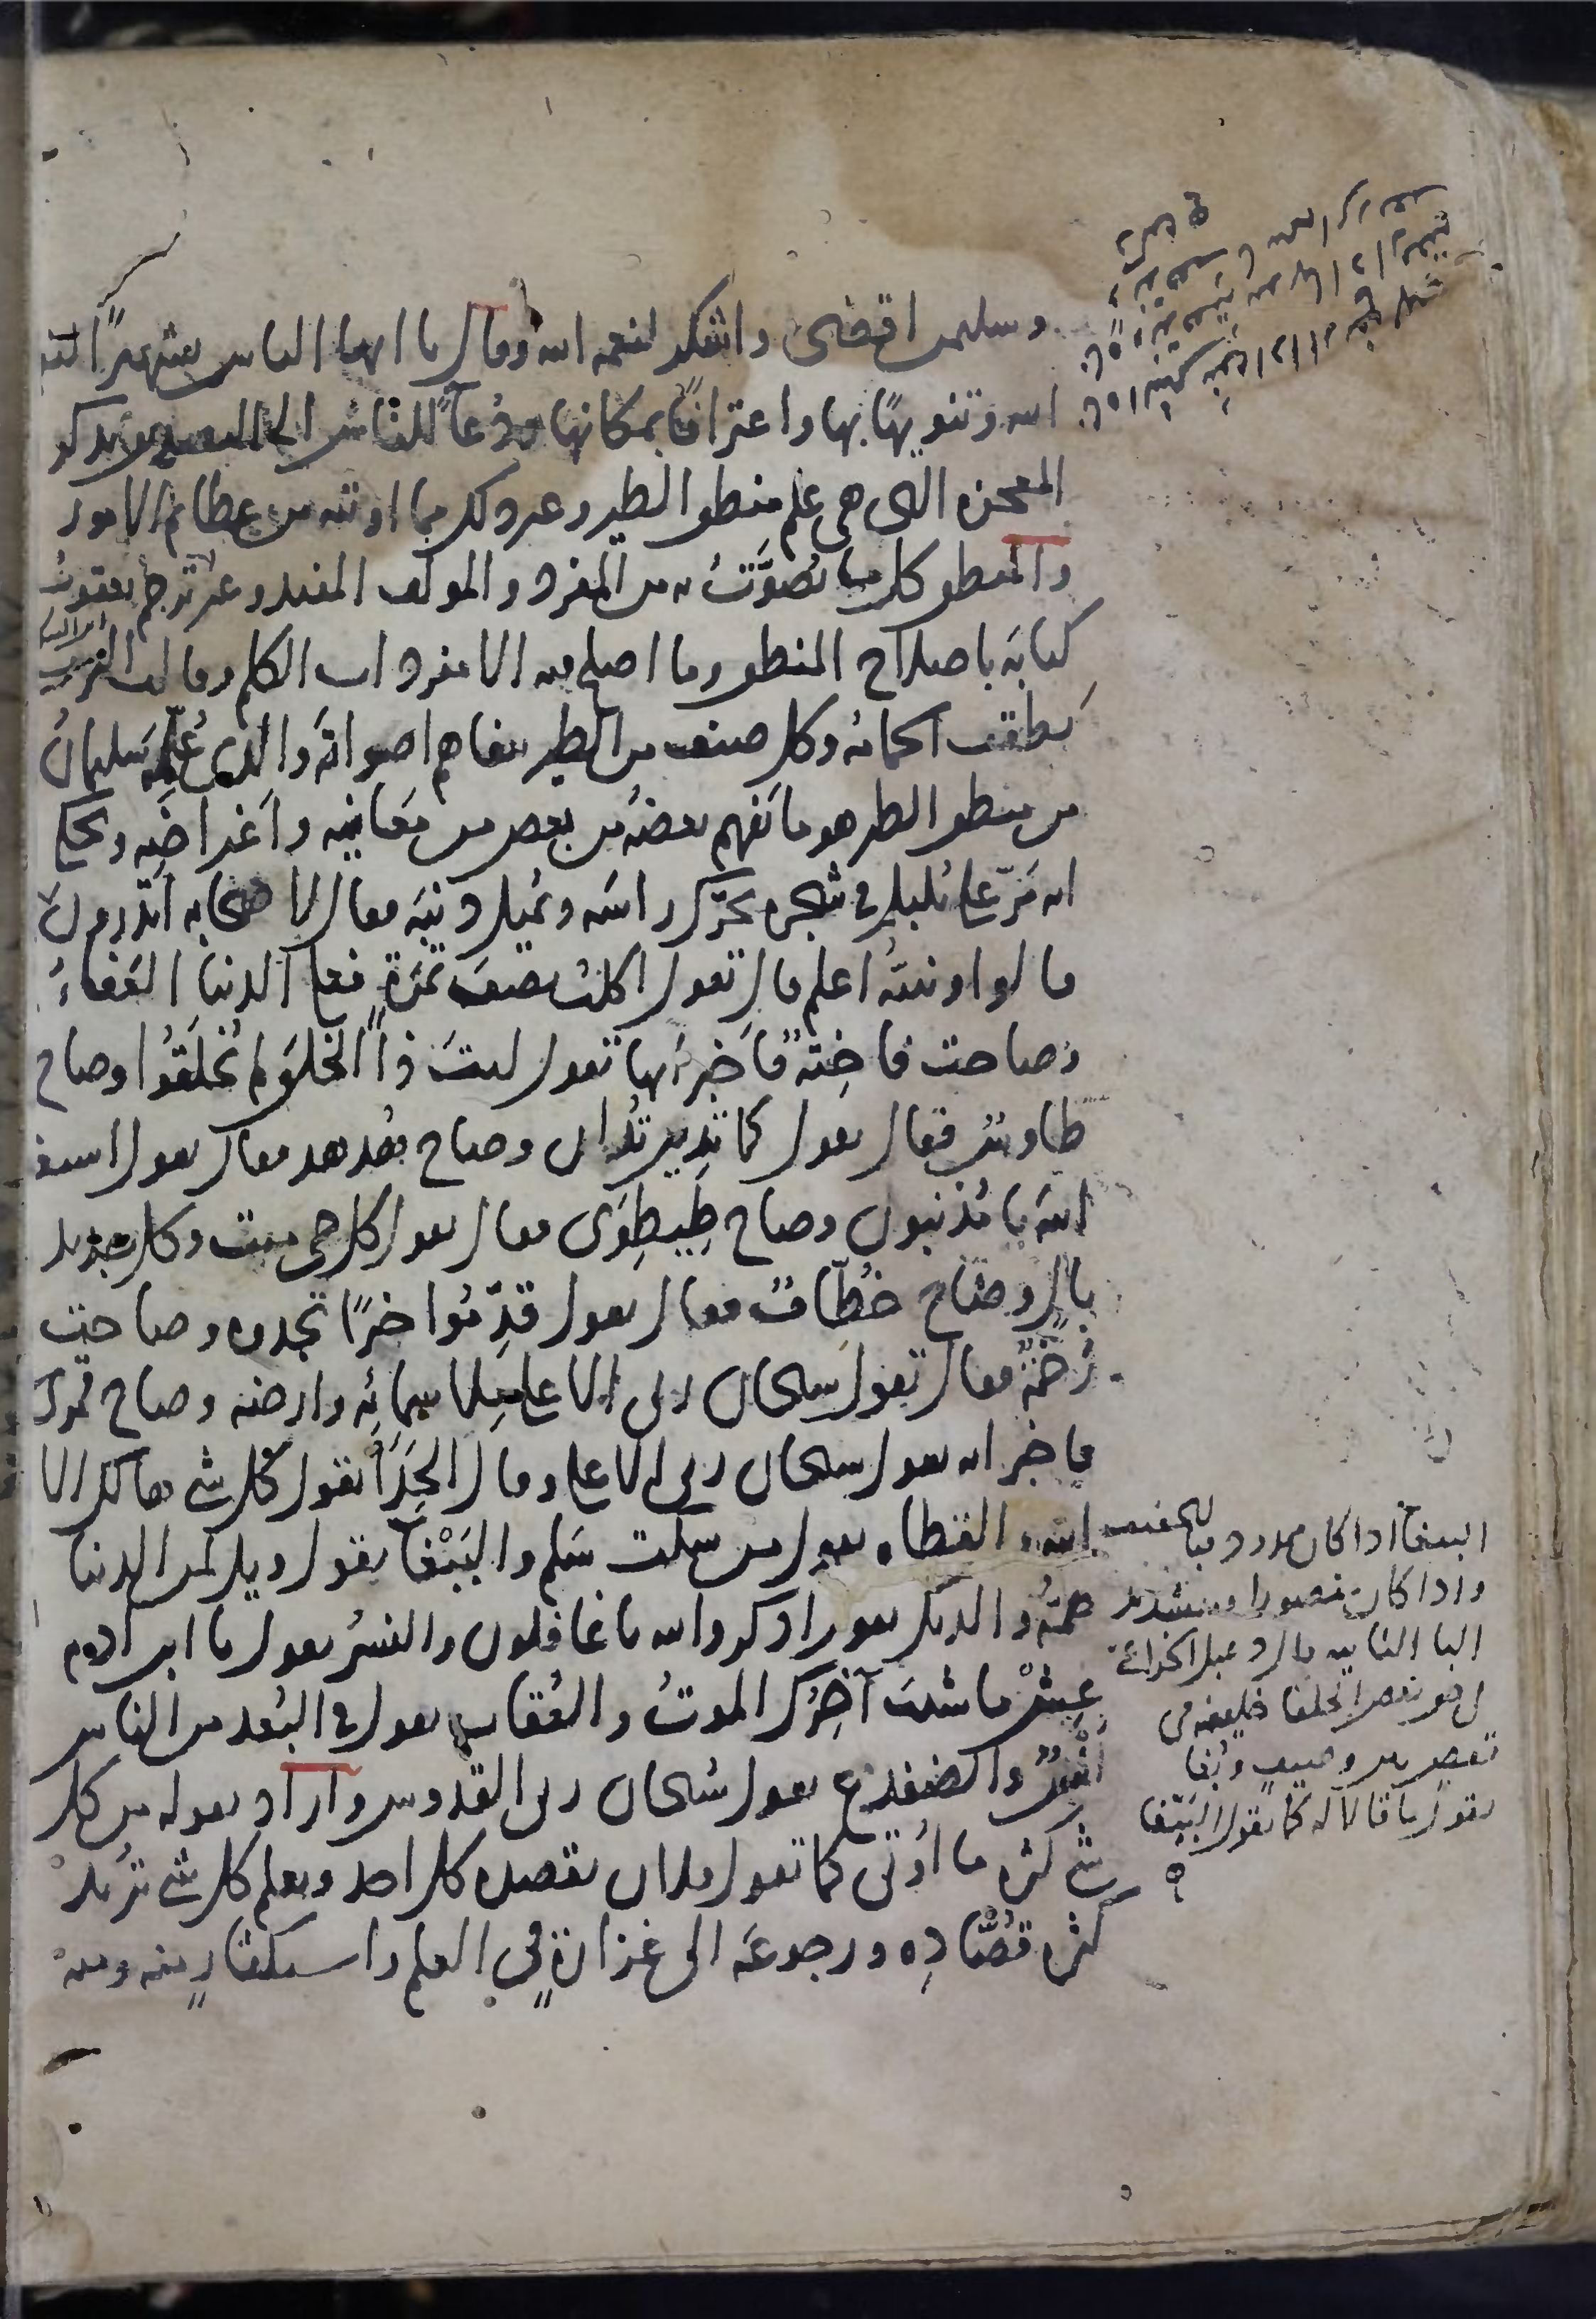 وسليمن اقضى واشكر لنعمه الله وقال يا ايها الناس تشهيرًا لنعمه
الله وتنويهًا بها واعترافًا بمكانها ودُعآءً للناس الى التصديق بذكر
المعجزه التى هى علم منطق الطير وغير ذلك مما اوتيه من عظائم الامور
والمنطق كل ما يُصَوَّتُ به من المفرد والمولف المفيد وغير ترجم يعقوبُ
ابن السكيت
كتابَه باصلاح المنطق وما اصلح فيه الا مفردات الكلم وقالت العرب
نَطقت الحمامه وكل صنف من الطير يتفاهم اصواته والذى عُلِّمَه سليمانُ
من منطق الطير هو ما يَفهم بعضُه من بعض من مَعانِيه واَغراضِه ويحكى
انه مَرّ على بُلبلٍ فى شجره يحرّك راسَه ويُميل ذنبَه فقال لاصحابه اتدرون
ما يقول
قالوا الله ونبيّهُ اعلم قال تقول اكلتُ نصفَ تمرَةٍ فعلى الدنيا العَفاءُ
وصاحت فاخِتَهٌ فاخبر اَنها تقول ليتَ ذا الخلقَ لم يُخلَقُوا وصاح
طاوسٌ فقال يقول كما تدِين تُدان وصاح هُدهد فقال يقول استغفروا
اللهَ يا مُذنبون وصاح طِيطِوَى فقال يقول كل حى ميت وكل جديد
بالٍ وصاح خُطّافٌ فقال يقول قدِّمُوا خيرًا تجدوه وصاحت
رَخَمَهٌ فقال تقول سبحان ربى الاعلى مِلأ سمائِه وارضه وصاح قُمرى
فاخبر انه يقول سبحان ربى الاعلى وقال الحِدَأ يقول كل شى هالك الا
الله والقطاه تقول من سكت سَلم والبَبّغا يقول ويل لمن الدنيا
همّهُ والديك يقول اذكروا الله يا غافلون والنسرُ يقول يا ابن ادم
عِشْ ما شئت آخِرُك الموتُ والعُقاب يقول فى البُعد من الناس
اُنْسٌ والضفدع يقول سُبحان ربى القدوس واراد بقوله من كل
شى كثره ما اُوتى كما تقول فلان يقصده كل احد ويعلم كل شى تريد
كثره قُصّادِه ورجوعَه الى غزارةٍ فى العلم واستكثارٍ منه ومنه
الببغا اذا كان ممدودا فبالتخفيف
واذا كان مقصورا فبتشديد
البا الثانيه
تعصر بين وصيف وبُغا
يقول ما قالا له كما يقول الببّغا